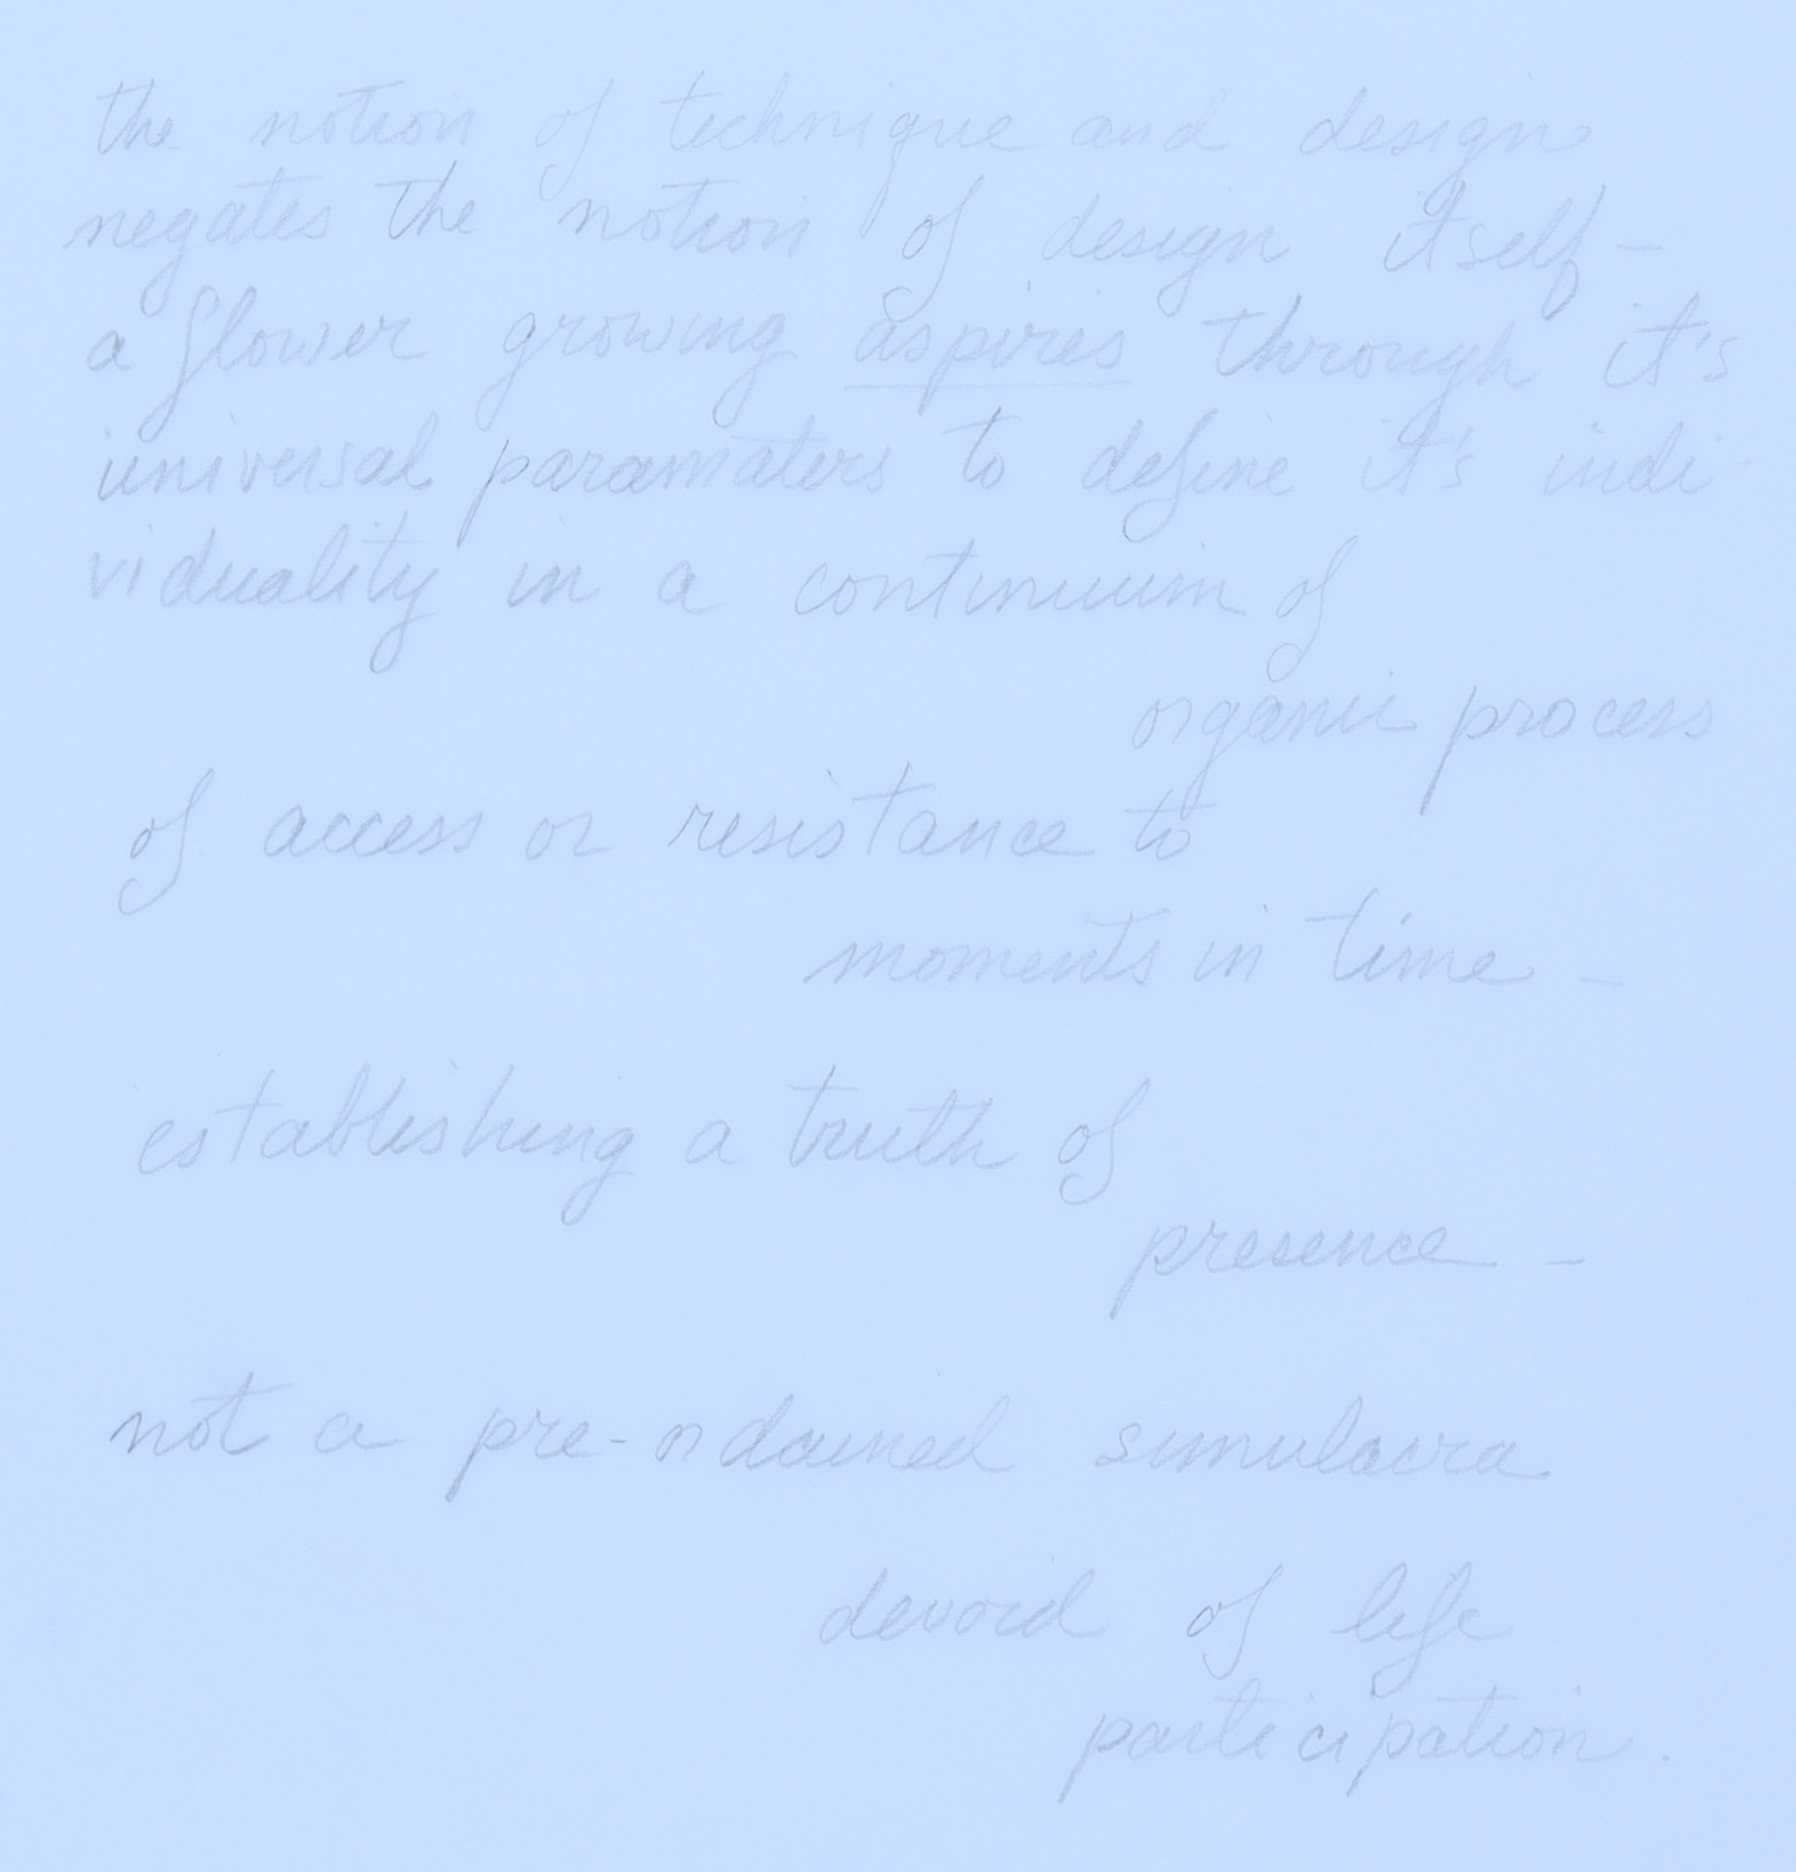 the notion of technique and design
negates the notion of design itself –
a flower growing aspires through it's
universal paramaters to define it's indi-
viduality in a continuum of
organic process
of access or resistance to
moments in time –
establishing a truth of
presence –
not a pre-ordained simulacra
devoid of life
participation.